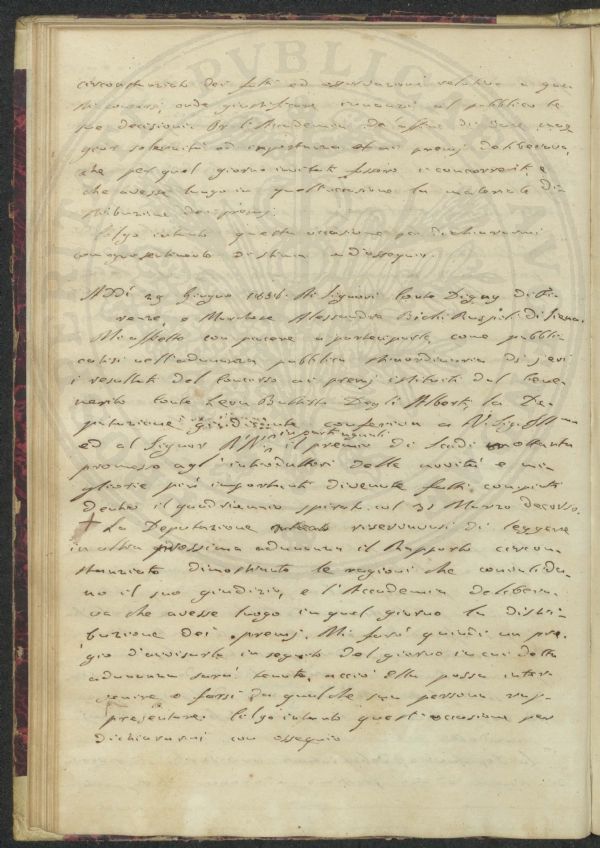 circostanziato dei fatti ed osservazioni relative a que-
sti concorsi, onde giustificare innanzi al pubblico le
sue decisioni. E l'Accademia da affine di dare mag-
gior solennità ed importanza ai premj deliberava,
che per quel giorno invitati fossero i concorrenti, e
che avesse luogo in quell'occasione la materiale di-
stribuzione dei premj.
Colgo intanto questa occasione per dichiararmi
con ogni sentimento di stima e d'ossequio.
Addì 29 Giugno 1834. Ai Signori Conte Digny di Fi-
renze, e Marchese Alessandro Bichi Ruspoli di Siena.
Mi affretto con piacere a parteciparle, come pubbli-
catisi nell'adunanza pubblica straordinaria di jeri
i resultati del Concorso ai premj istituiti dal bene-
merito Conte Leon Battista Degli Alberti, la De-
putazione giudicante conferiva a V. Sig. Illma
ed al Signor NN. in parti uguali il premio di Scudi ottanta
promesso agl'introduttori delle novità e mi-
gliorie più importanti divenute fatti compiuti
dentro il quadriennio spirato col 31 Marzo decorso.
+ La Deputazione riservavasi di leggere
in altra prossima adunanza il Rapporto circon-
stanziato dimostrante le ragioni che convalida-
no il suo giudizio, e l'Accademia delibera-
va che avesse luogo in quel giorno la distri-
buzione dei premj. Mi farò quindi un pre-
gio d'avvisarla in seguito del giorno in cui detta
adunanza sarà tenuta, acciò Ella possa inter-
venire o farsi da qualche sua persona rap-
presentare. Colgo intanto quest'occasione per
dichiararmi con ossequio